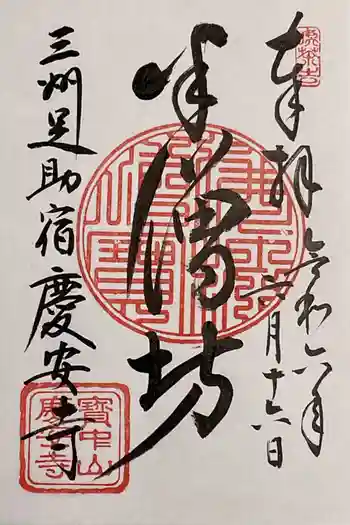 奉拝
令和六年
六月十六日
半僧坊
三州足助宿慶安寺
寶中山
慶安寺